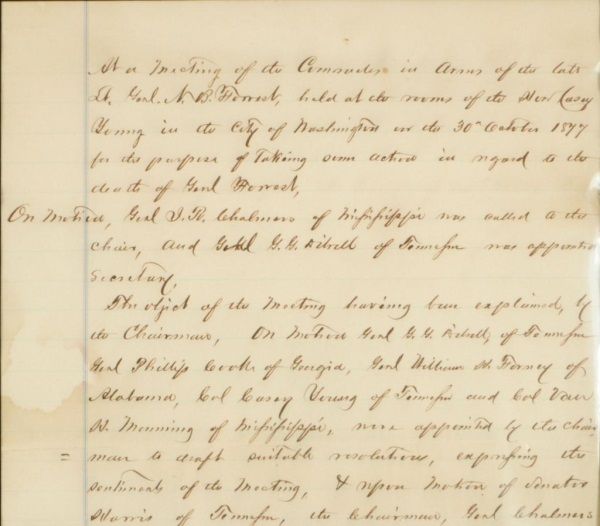 At a Meeting of the Comrades in Arms of the late
Lt. Genl. N. B. Forrest, held at the rooms of the Hon Casey
Young in the City of Washington on the 30th October 1877
for the purpose of Taking some action in regard to the
death of Genl Forrest,
On Motion, Genl J. R. Chalmers of Mississippi was called to the
chair, and Genl G. G. Dibrell of Tennessee was appointed
Secretary,
The object of the Meeting having been explained, by
the Chairman, On Motion Genl G. G. Dibrell, of Tennessee
Genl Phillip Cook of Georgia, Genl William H. Forney of
Alabama, Col Casey Young of Tennessee and Col Van
H. Manning of Mississippi, were appointed by the chair
= man to draft suitable resolutions, expressing the
sentiments of the Meeting, & upon Motion of Senator
Harris of Tennessee, the Chairman, Genl Chalmers